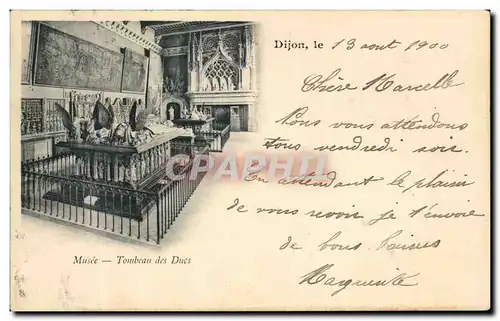 Dijon, le 13 aout 1900
Chère Marcelle
Nous vous attendons
tous vendredi soir.
CPARAMA
En attendant le plaisir
de vous revoir je t'envoie
de bons baisers
Marguerite
Musée — Tombeau des Ducs